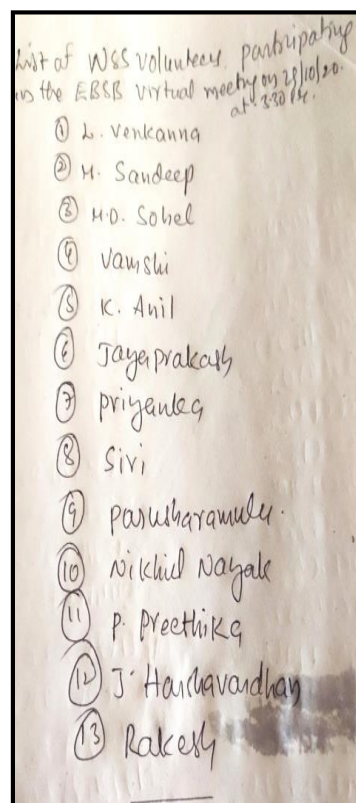 List of NSS volunteers participating
in the EBSB virtual meeting on 28/10/20.
at 3:30 PM.
① L. Venkanna
② M. Sandeep
③ M.D. Sohel
④ Vamshi
⑤ K. Anil
⑥ Jayaprakash
⑦ Priyanka
⑧ Siri
⑨ Parusharamulu.
⑩ Nikhil Nayak
⑪ P. Preethika
⑫ J. Harshavardhan
⑬ Rakesh